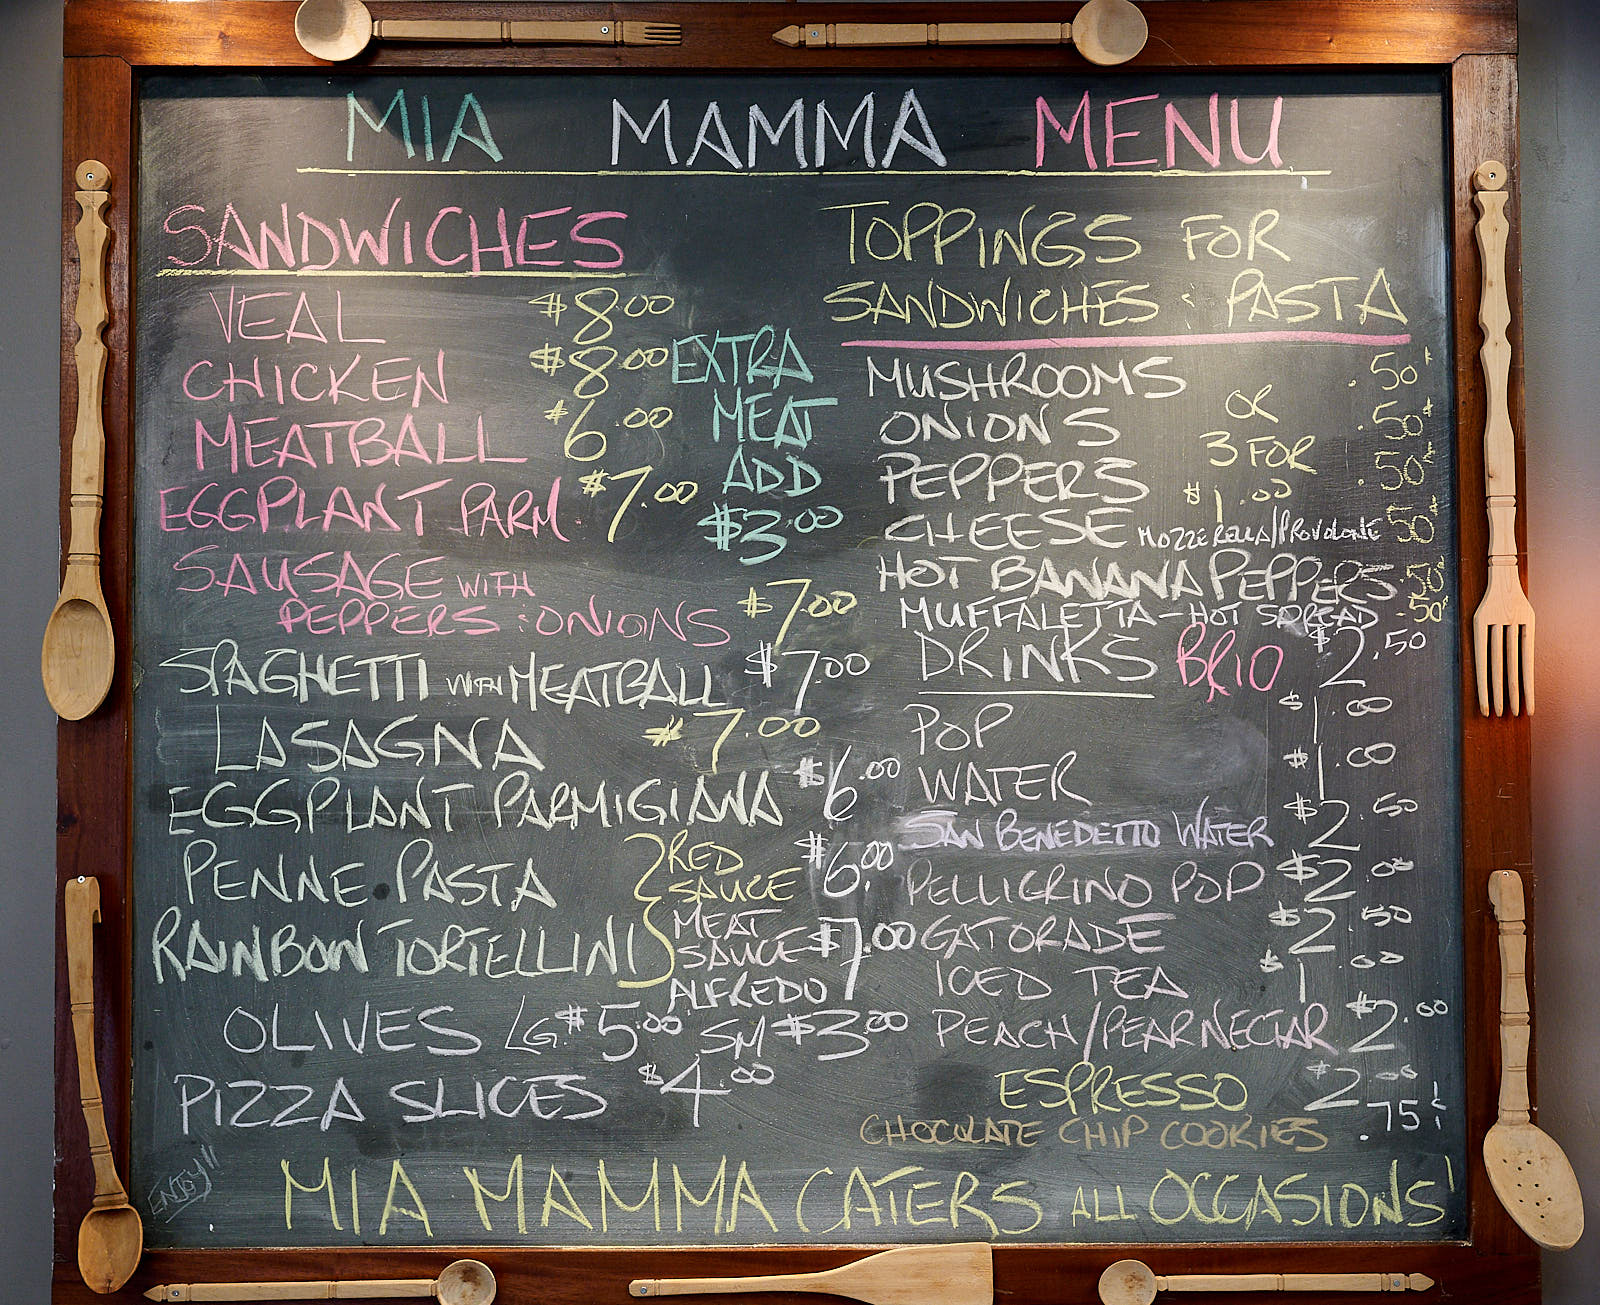 MIA MAMMA MENU
SANDWICHES
VEAL $8.00
CHICKEN $8.00
MEATBALL $6.00
EGGPLANT PARM. $7.00
SAUSAGE WITH
PEPPERS & ONIONS $7.00
EXTRA
MEAT
ADD
$3.00
SPAGHETTI WITH MEATBALL $7.00
LASAGNA $7.00
EGGPLANT PARMIGIANA $6.00
PENNE PASTA
RAINBOW TORTELLINI
RED
SAUCE $6.00
MEAT
SAUCE $7.00
ALFREDO
OLIVES LG. $5.00 SM $3.00
PIZZA SLICES $4.00
TOPPINGS FOR
SANDWICHES & PASTA
MUSHROOMS .50¢
ONIONS .50¢
PEPPERS .50¢
OR
3 FOR
$1.00
CHEESE MOZZERELLA/PROVOLONE .50¢
HOT BANANA PEPPERS .50¢
MUFFALETTA - HOT SPREAD .50¢
DRINKS BRIO $2.50
POP $1.00
WATER $1.00
SAN BENEDETTO WATER $2.50
PELLIGRINO POP $2.00
GATORADE $2.50
ICED TEA $1.00
PEACH/PEAR NECTAR $2.00
ESPRESSO $2.00
CHOCOLATE CHIP COOKIES .75¢
ENJOY!!
MIA MAMMA CATERS ALL OCCASIONS!